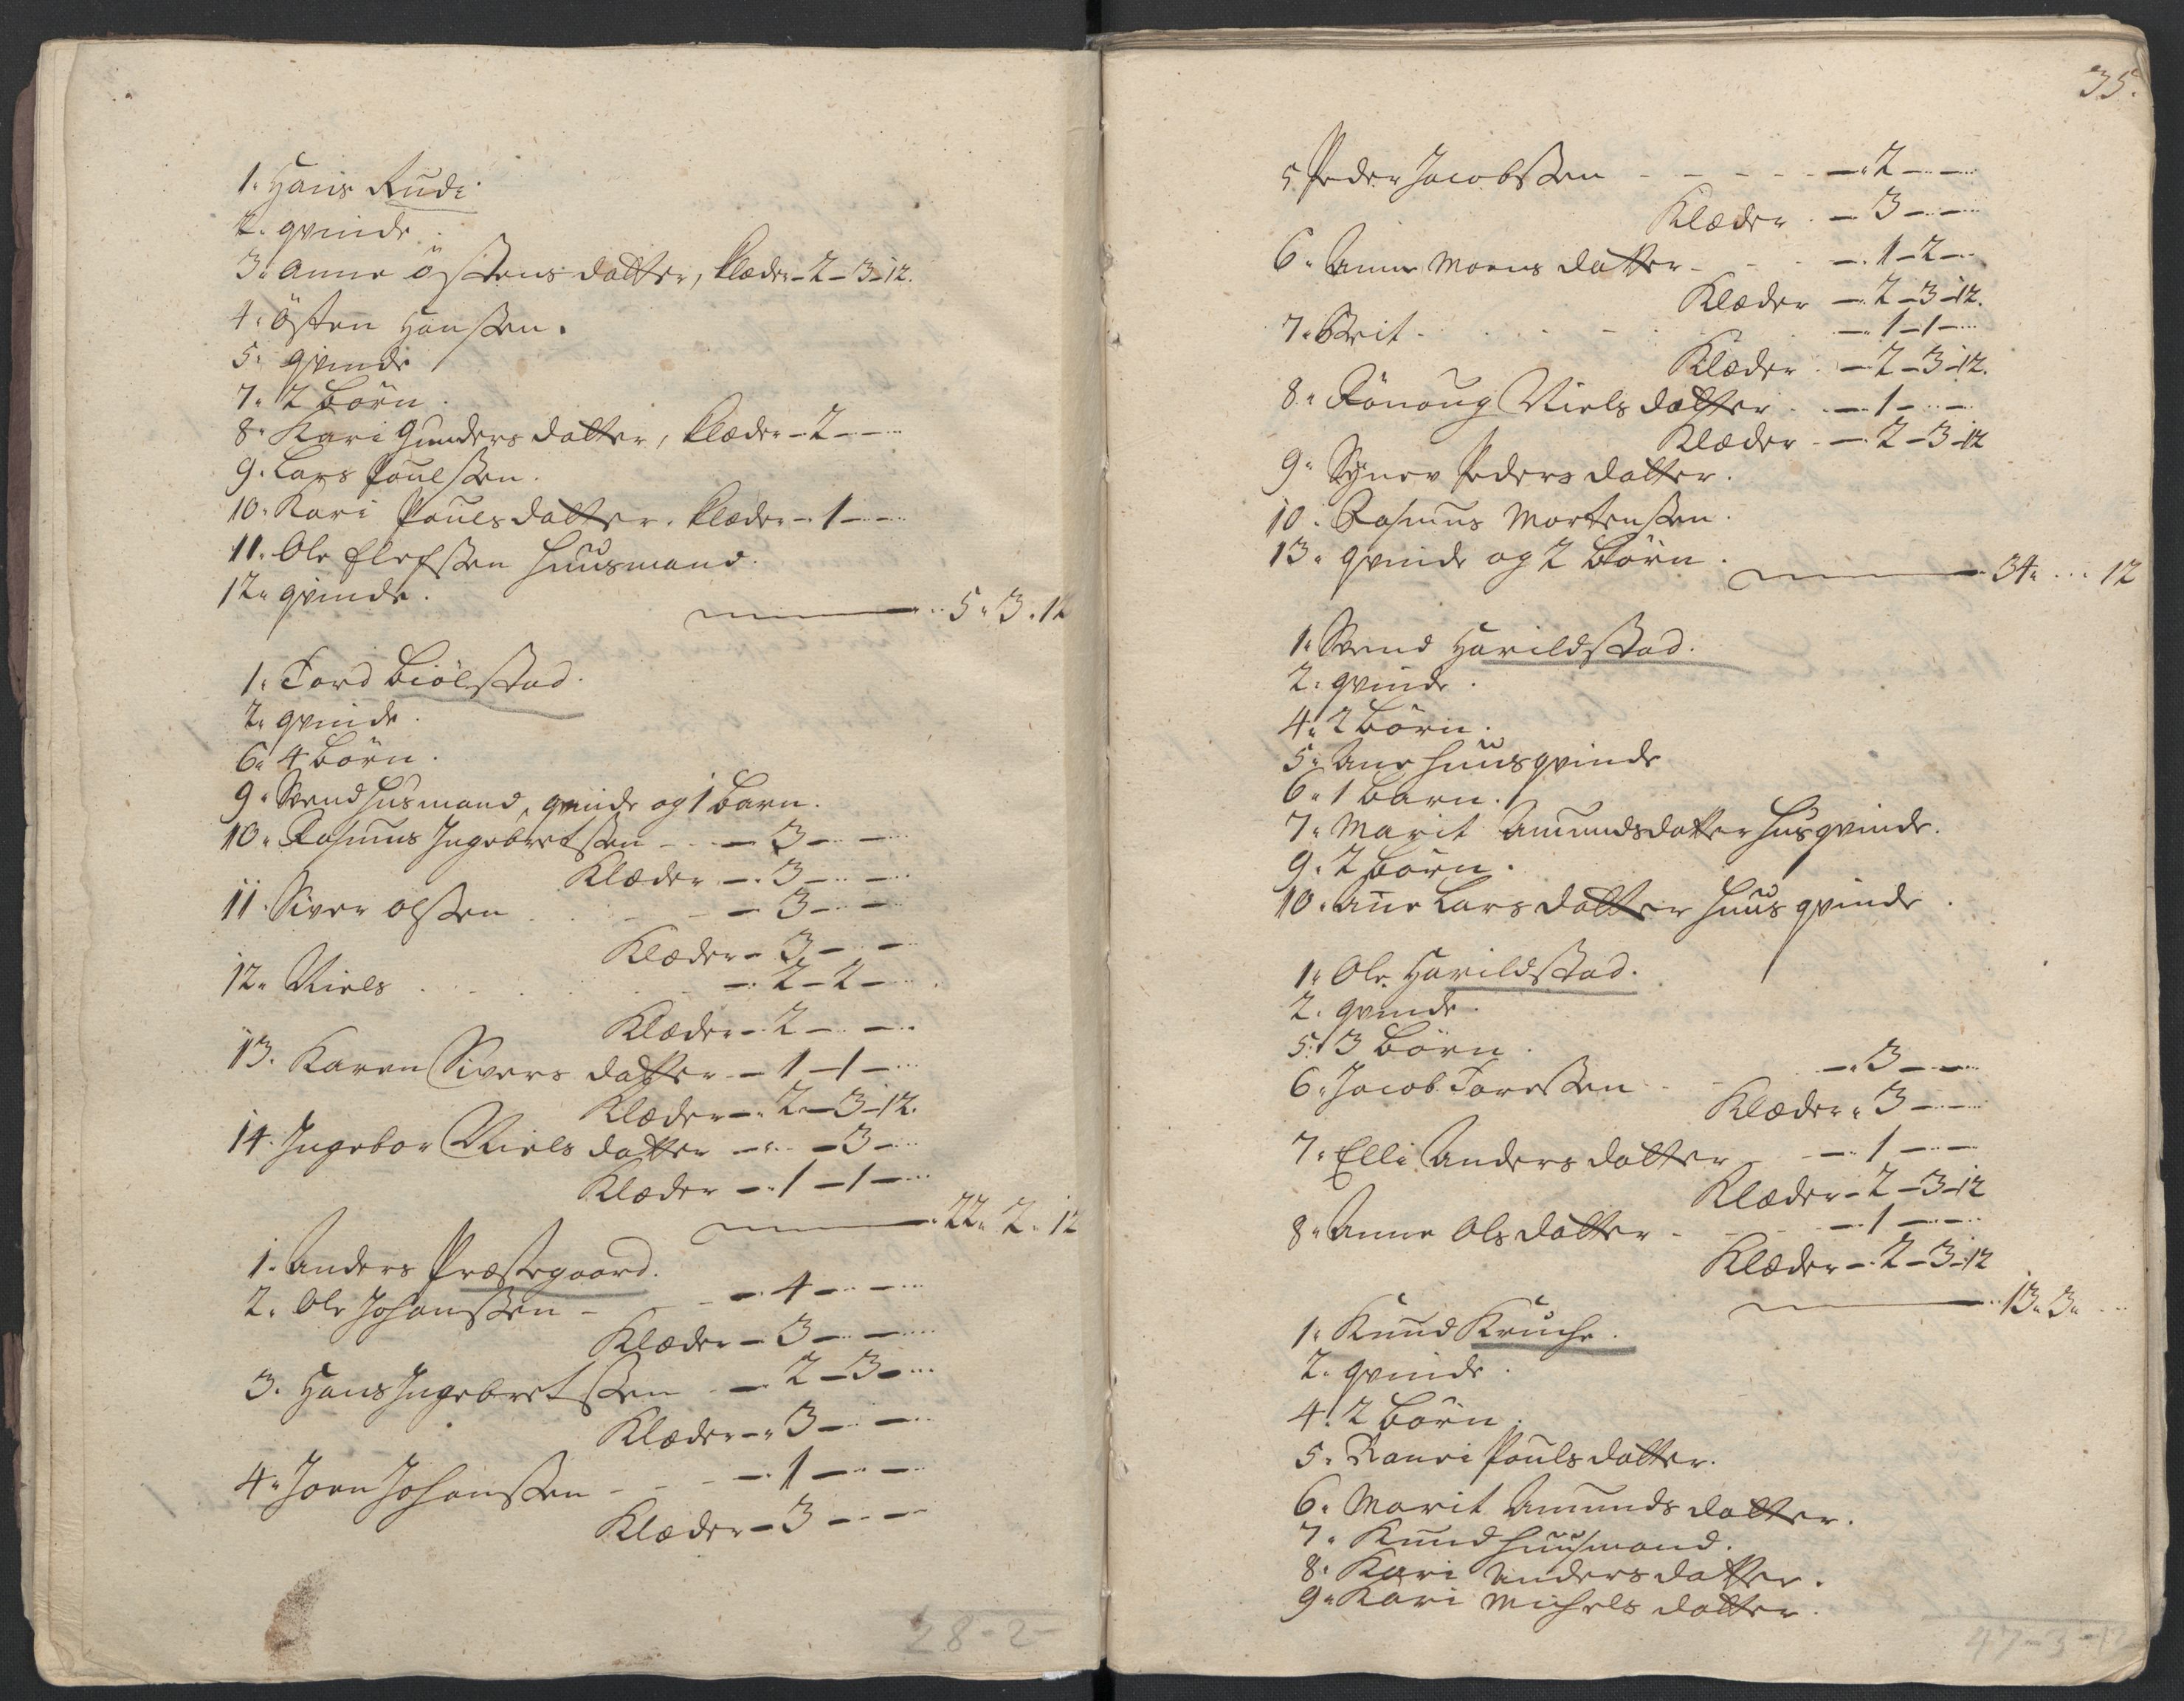 1. Hans Rudi
2. qvinde.
3. Anne Östens datter, klæder - 2 - 3 - 12.
4. Östen Hanssen.
5. qvinde
7. 2 börn.
8. Kari Gunders datter, klæder - 2 - -
9. Lars Poulssen.
10. Kari Pouls datter. klæder - 1 - -
11. Ole Elefssen huusmand.
12. qvinde.
5. 3. 12
1. Tord Biölstad.
2. qvinde.
6. 4 börn.
9. Svend husmand, qvinde og 1 barn.
10. Rasmus Ingebretssen - - 3 - -
Klæder - 3 - -
11. Siver olssen - 3 - -
Klæder - 3 - -
12. Niels - 2 - 2 -
Klæder - 2 - -
13. Karen Sivers datter - 1 - 1 -
Klæder - 2 - 3 - 12.
14. Ingebor Niels datter - - 3 -
Klæder - 1 - 1 -
22. 2. 12
1. Anders Præstegaard.
2. Ole Johanssen - - 4 - -
Klæder - 3 - -
3. Hans Ingebretssen - 2 - 3 -
Klæder - 3 - -
4. Joen Johanssen - - 1 - -
Klæder - 3 - -
28 - 2 -
35.
5 Peder Jacobssen - - - - - 2 - -
Klæder - 3 - -
6. Anne Moens datter - - 1 - 2 -
Klæder - 2 - 3 - 12.
7. Brit - - 1 - 1 -
Klæder - 2 - 3 - 12.
8. Rönoug Niels datter - 1 - -
Klæder - 2 - 3 - 12
9. Synev Peders datter.
10. Rasmus Mortenssen.
13. qvinde og 2 börn.
34. .. 12
1. Svend Harildstad.
2. qvinde.
4. 2 börn.
5. Ane huusqvinde
6. 1 barn.
7. Marit Amundsdatter husqvinde.
9. 2 börn.
10. Ane Lars datter huusqvinde.
1. Ole Harildstad.
2. qvinde.
5. 3 börn.
6. Jacob Toressen - - 3 - -
Klæder - 3 - -
7. Elli Anders datter - 1 - -
Klæder - 2 - 3 - 12
8. Anne Ols datter - - 1 - -
Klæder - 2 - 3 - 12
13. 3. -
1. Knud Kruche.
2. qvinde.
4. 2 börn.
5. Ranei Pouls datter.
6. Marit Amunds datter.
7. Knud huusmand.
8. Kari Anders datter.
9. Kari Michels datter.
47 - 3 - 12